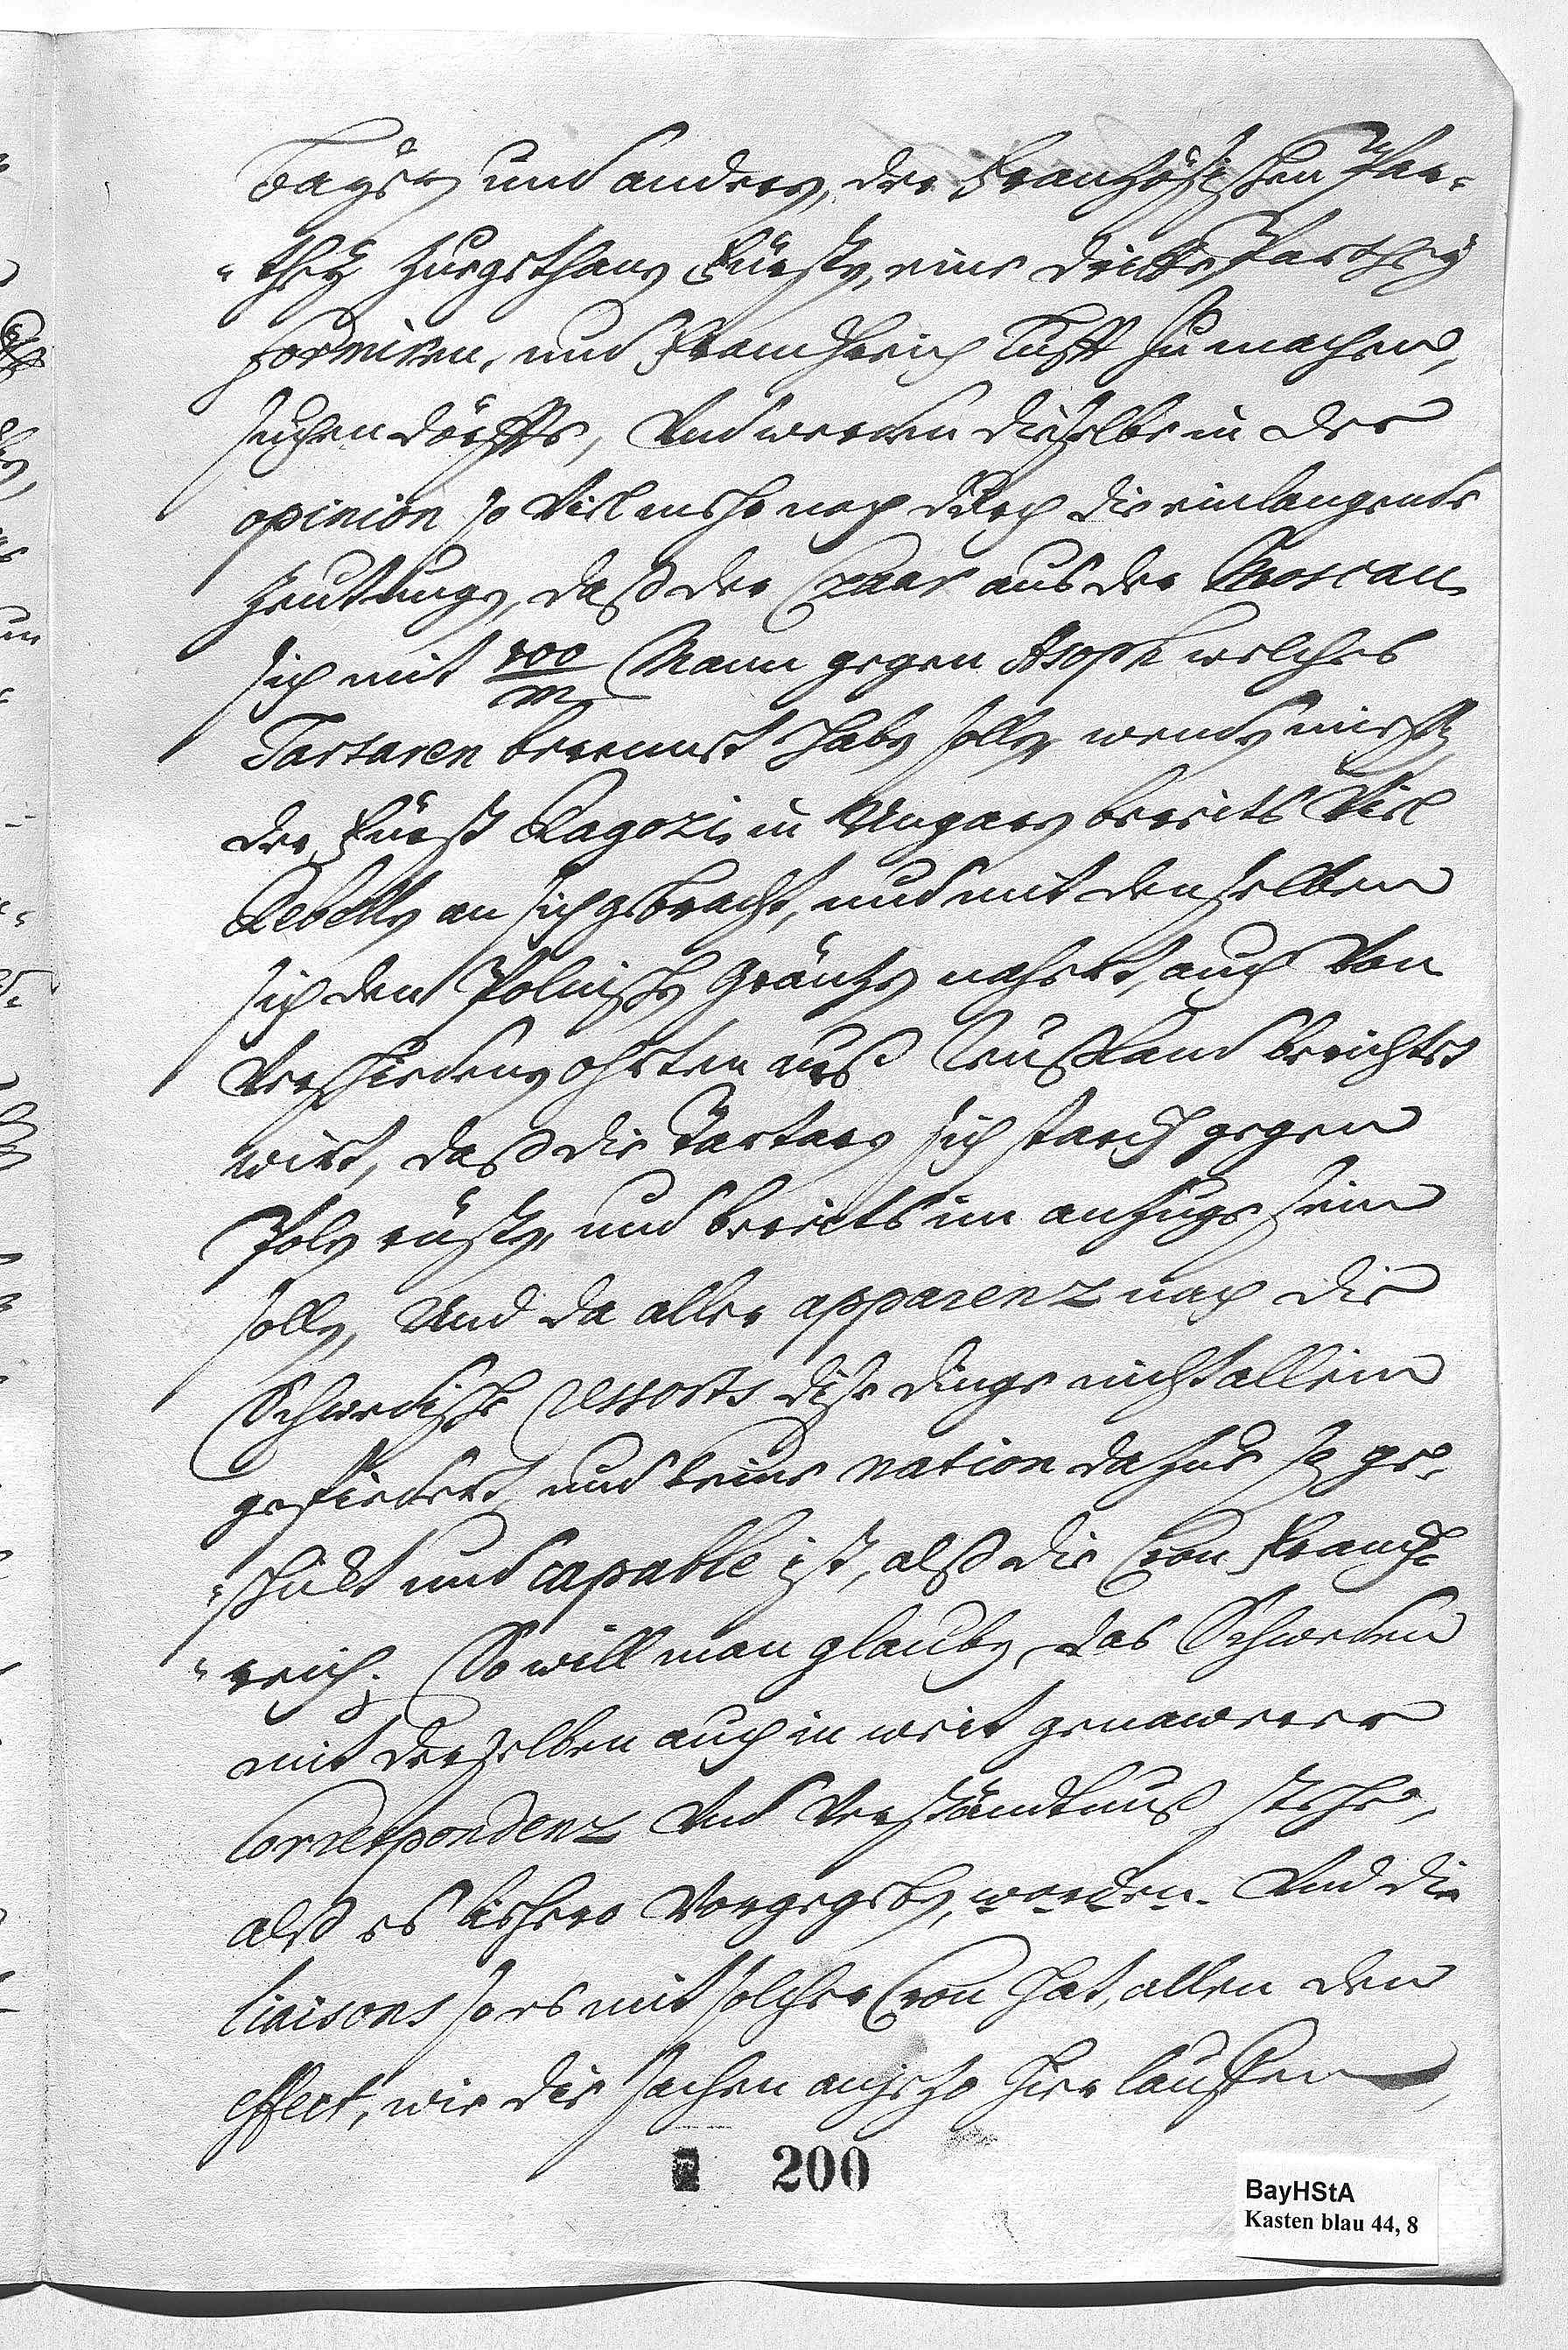 Bayrn und andern, der Französischen Par-
-they zugethanen Fürsten, eine dritte Parthey
formiren, und Franckreich Lufft zu machen,
suchen dörffte, Und werden dieselbe in der
opinion so Viel mehr noch durch die einlangende
Zeutungen, daß der Czaar aus der Moscau
sich mit 100/m Mann gegen Asoph welches
Tartaren berennet haben sollen, wenden müste,
der Fürst Ragozi in Ungarn bereits Viel
Rebellen an sich gebracht, und mit denselben
sich den Polnischen Gräntzen nahert, auch Von
Verschiedenen ohrten auß Reußland berichtet
wirt, daß die Tartarn sich starck gegen
Polen rüsten, und bereits im anzuge sein
sollen, Und da aller apparenz nach die
Schwedische ressorts diese dinge nicht allein
, und keine nation dahzue so ge-
-schickt und capable ist, alß die Cron Franck-
-reich; So will man glauben, das Schweden
mit derselben auch in weit genawerer
Correspondenz Und Verständtnuß stehe,
alß es bishero Vorgegeben, worden. Und die
liaisons so es mit solcher Cron hat, allen den
effect, wie die sachen anjezo hier lauffen,
200
BayHStA
Kasten blau 44, 8